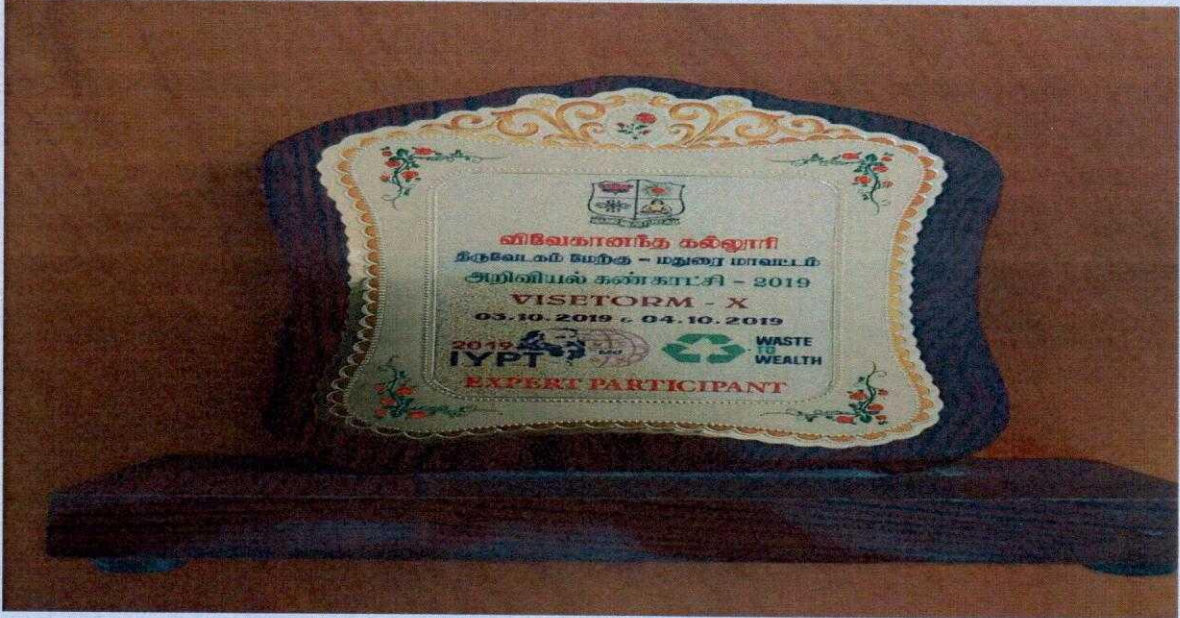 விவேகானந்த கல்லூரி
திருவேடகம் மேற்கு – மதுரை மாவட்டம்
அறிவியல் கண்காட்சி – 2019
VISETORM - X
03.10.2019 & 04.10.2019
2019
IYPT
WASTE
TO
WEALTH
EXPERT PARTICIPANT